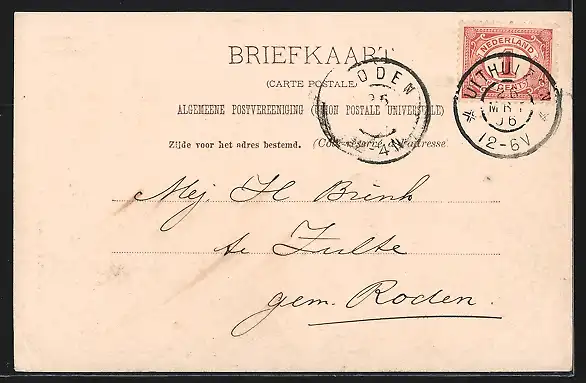 BRIEFKAART
(CARTE POSTALE)
ALGEMEENE POSTVEREENIGING (UNION POSTALE UNIVERSELLE)
Zijde voor het adres bestemd. (Côté réservé à l'adresse
NEDERLAND
1
CENT
UITHUIZEN
26
MRT
06
12-6V
RODEN
26
2-4N
Mej. H Brink
te Zulte
gem. Roden.